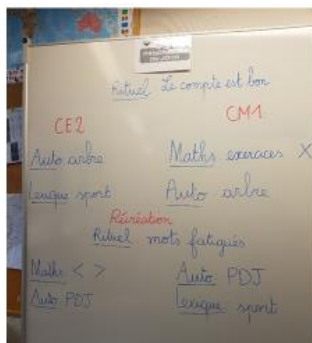 Rituel Le compte est bon
CE2 CM1
Auto arbre Maths exercices X
Lexique sport Auto arbre
Récréation
Rituel mots fatigués
Maths < > Auto PDJ
Auto PDJ Lexique sport